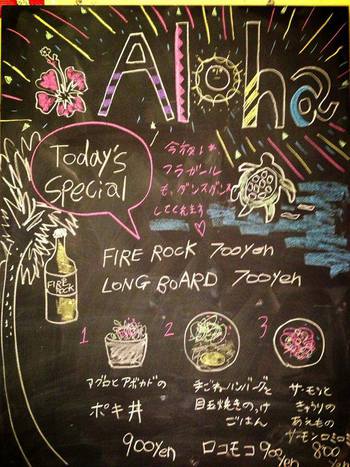 Aloha
Today's
Special
今夜は
フラガール
も、ダンスダンス
してくれます
FIRE ROCK 700yen
LONG BOARD 700yen
FIRE
ROCK
1
マグロとアボカドの
ポキ丼
900yen
2
手ごねハンバーグと
目玉焼きのっけ
ごはん
ロコモコ 900yen
3
サーモンと
きゅうりの
あえもの
サーモンロミロミ
800
yen